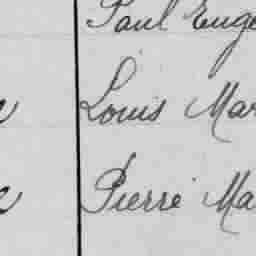 Paul Euge
Louis Mar
Pierre Ma